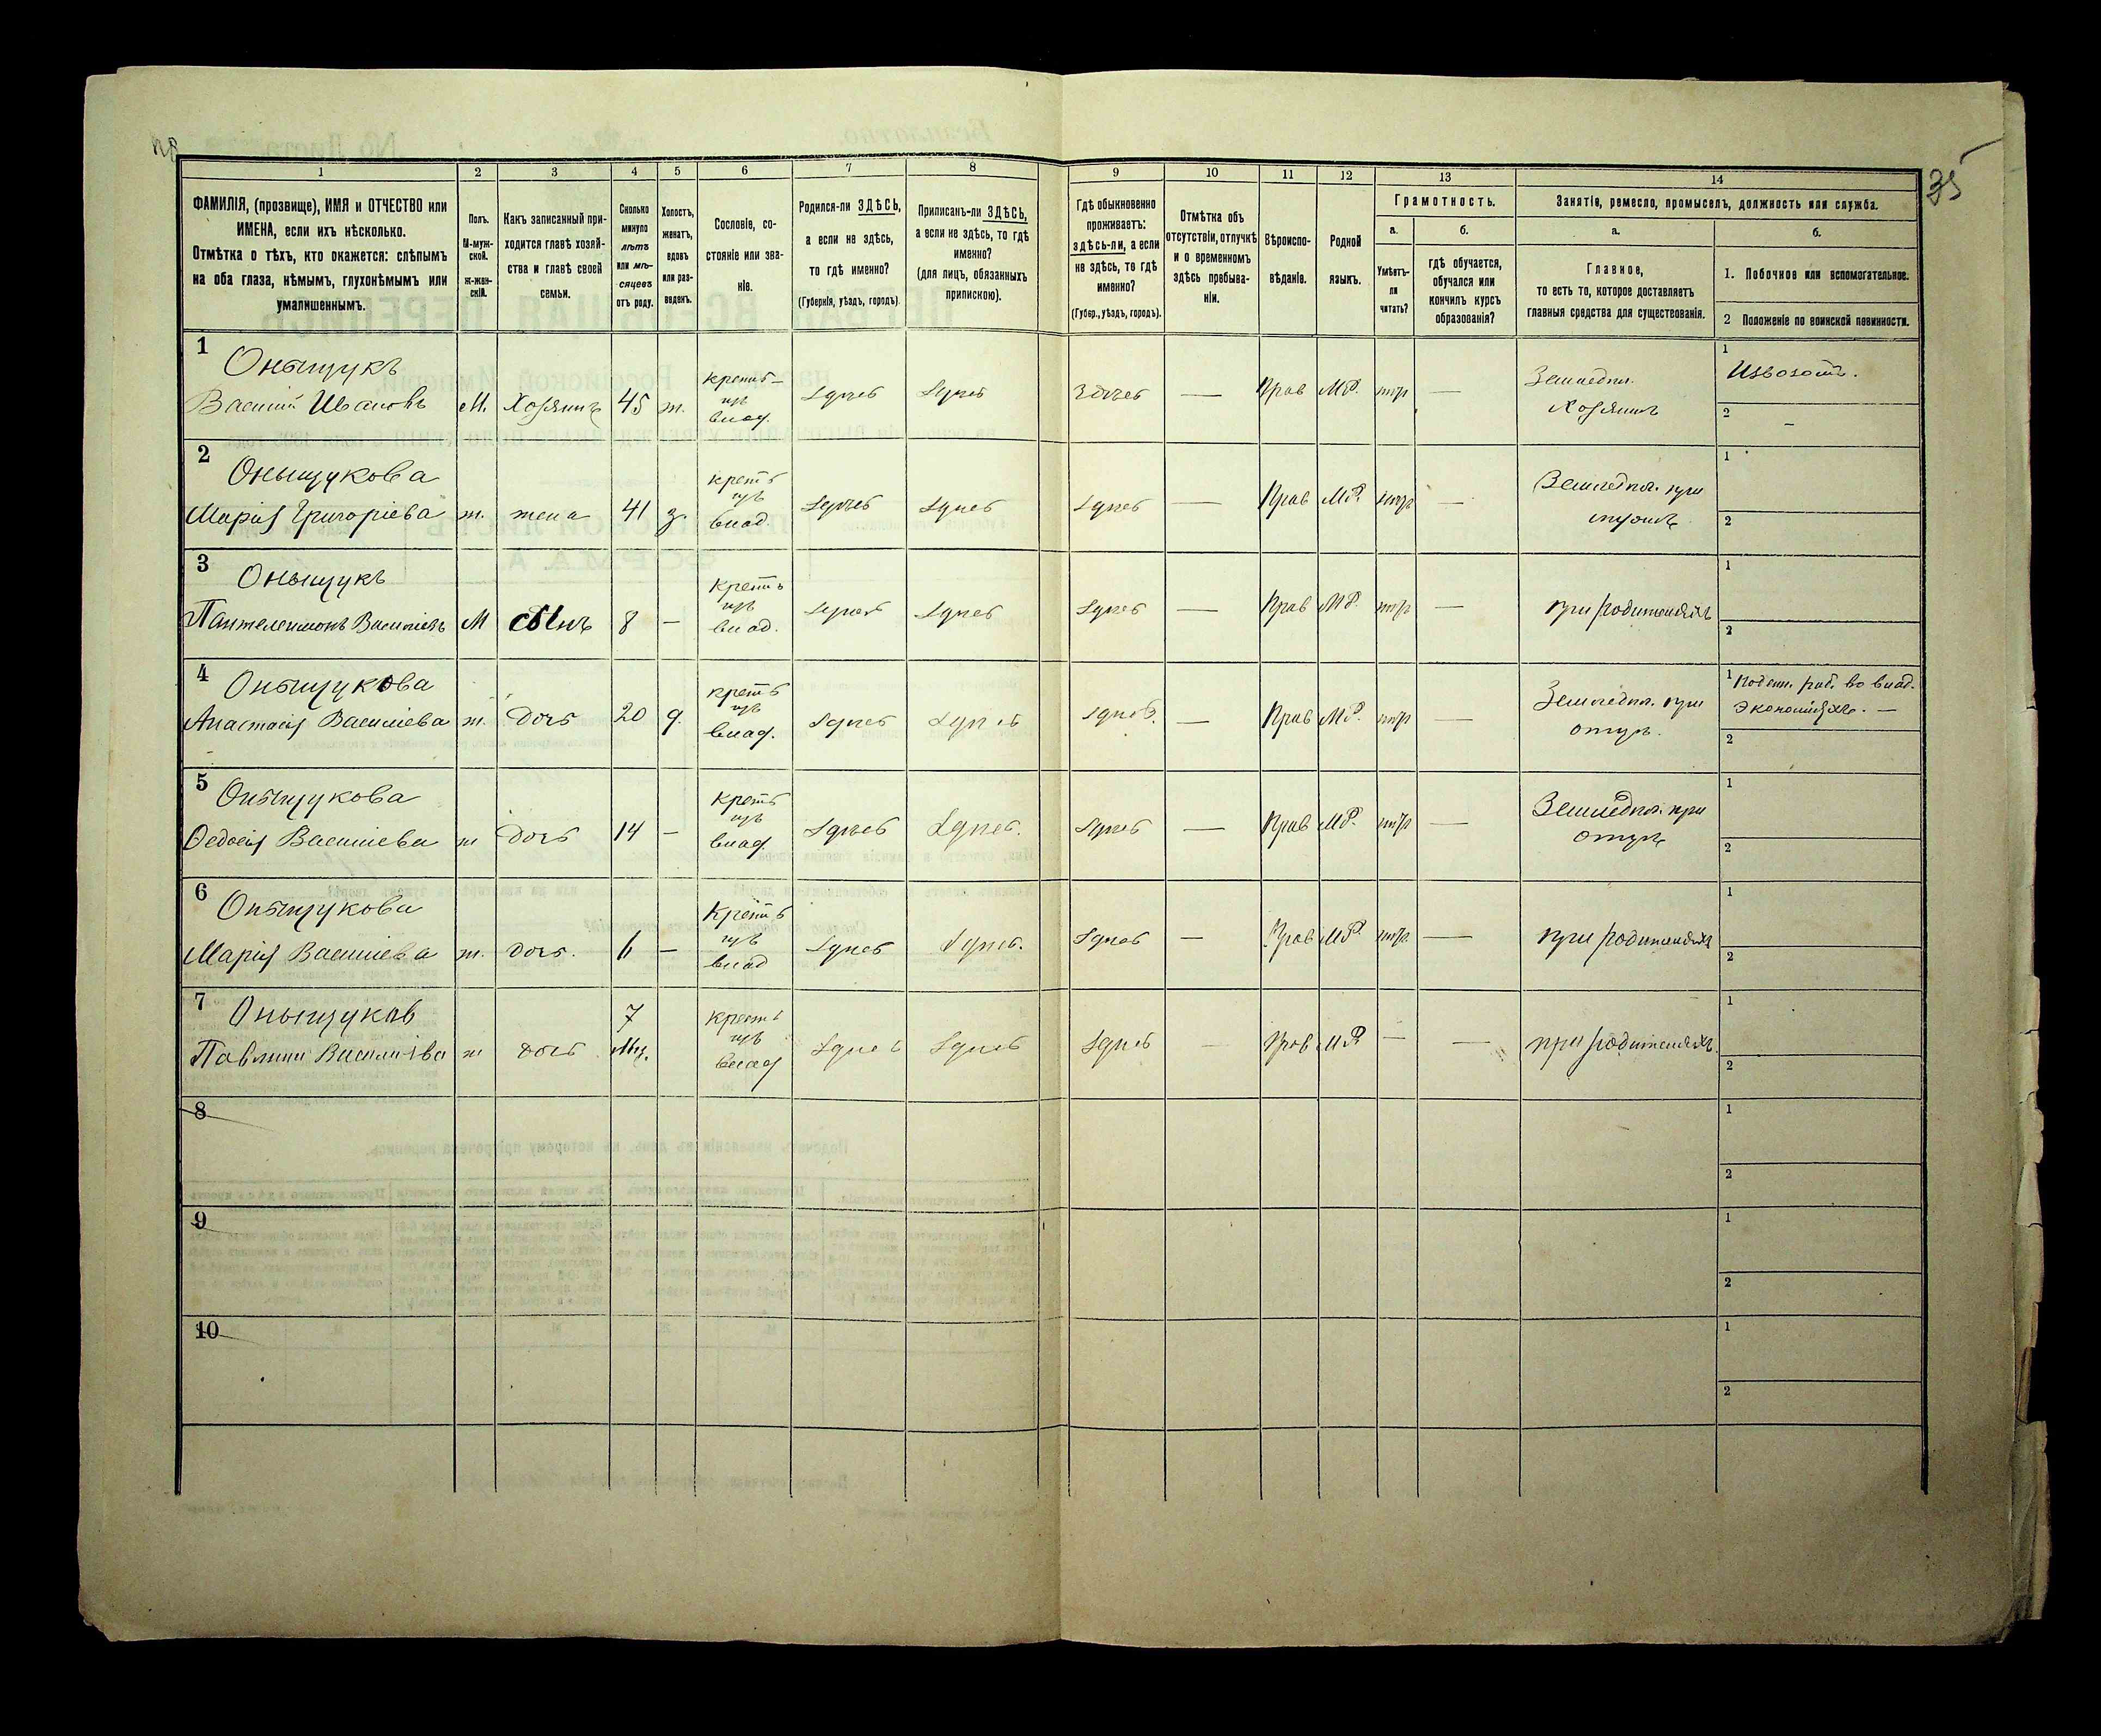 35
1 2 3 4 5 6 7 8 9 10 11 12 13 14
ФАМИЛІЯ, (прозвище), ИМЯ и ОТЧЕСТВО или
ИМЕНА, если ихъ нѣсколько.
Отмѣтка о тѣхъ, кто окажется: слѣпымъ
на оба глаза, нѣмымъ, глухонѣмымъ или
умалишеннымъ.
Полъ.
М-муж-
ской.
Ж-жен-
скій.
Какъ записанный при-
ходится главѣ хозяй-
ства и главѣ своей
семьи.
Сколько
минуло
лѣтъ
или мѣ-
сяцевъ
отъ роду.
Холостъ,
женатъ,
вдовъ
или раз-
веденъ.
Сословіе, со-
стояніе или зва-
ніе.
Родился-ли ЗДѢСЬ,
а если не здѣсь,
то гдѣ именно?
(Губернія, уѣздъ, городъ).
Приписанъ-ли ЗДѢСЬ,
а если не здѣсь, то гдѣ
именно?
(для лицъ, обязанныхъ
припискою).
Гдѣ обыкновенно
проживаетъ:
здѣсь-ли, а если
не здѣсь, то гдѣ
именно?
(Губер., уѣздъ, городъ).
Отмѣтка объ
отсутствіи, отлучкѣ
и о временномъ
здѣсь пребыва-
ніи.
Вѣроиспо-
вѣданіе.
Родной
языкъ.
Грамотность.
а.
Умѣетъ-
ли
читать?
б.
гдѣ обучается,
обучался или
кончилъ курсъ
образованія?
Занятіе, ремесло, промыселъ, должность или служба.
а.
Главное,
то есть то, которое доставляетъ
главныя средства для существованія.
б.
1. Побочное или вспомогательное.
2 Положеніе по воинской повинности.
1
Онышукъ
Василій Ивановъ М. Хозяинъ 45 ж.
крест-
изъ
влад.
здѣсь здѣсь здѣсь — Прав М.Р. нтъ —
Земледѣл.
Хозяинъ
1 Извозомъ.
2 –
2
Онышукова
Марія Григоріева ж. жена 41 з.
крест
изъ
влад.
здѣсь здѣсь здѣсь — Прав М.Р. нтъ —
Земледѣл. при
мужѣ
1
2
3
Онышукъ
Пантелеимонъ Васильевъ М сынъ 8 —
крест
изъ
влад.
здѣсь здѣсь здѣсь — Прав М.Р. нтъ —
при родителяхъ
1
2
4
Онышукова
Анастасія Василіева ж. дочь 20 д.
крест
изъ
влад.
здѣсь здѣсь здѣсь. — Прав М.Р. нтъ —
Земледѣл. при
отцѣ.
1 поденн. раб. во влад.
экономіяхъ. —
2
5
Онышукова
Ѳедосія Василіева ж дочь 14 —
крест
изъ
влад.
здѣсь здѣсь. здѣсь — Прав М.Р. нтъ —
Земледѣл. при
отцѣ
1
2
6
Онышукова
Марія Василіева ж. дочь. 6 —
крест
изъ
влад
здѣсь здѣсь. здѣсь — Прав М.Р. нтъ. —
при родителяхъ
1
2
7
Онышуков
Павлина Василіева ж дочь
7
Мц.
крест
изъ
влад
здѣсь здѣсь здѣсь — Прав М.Р — —
при родителяхъ.
1
2
8
1
2
9
1
2
10
1
2